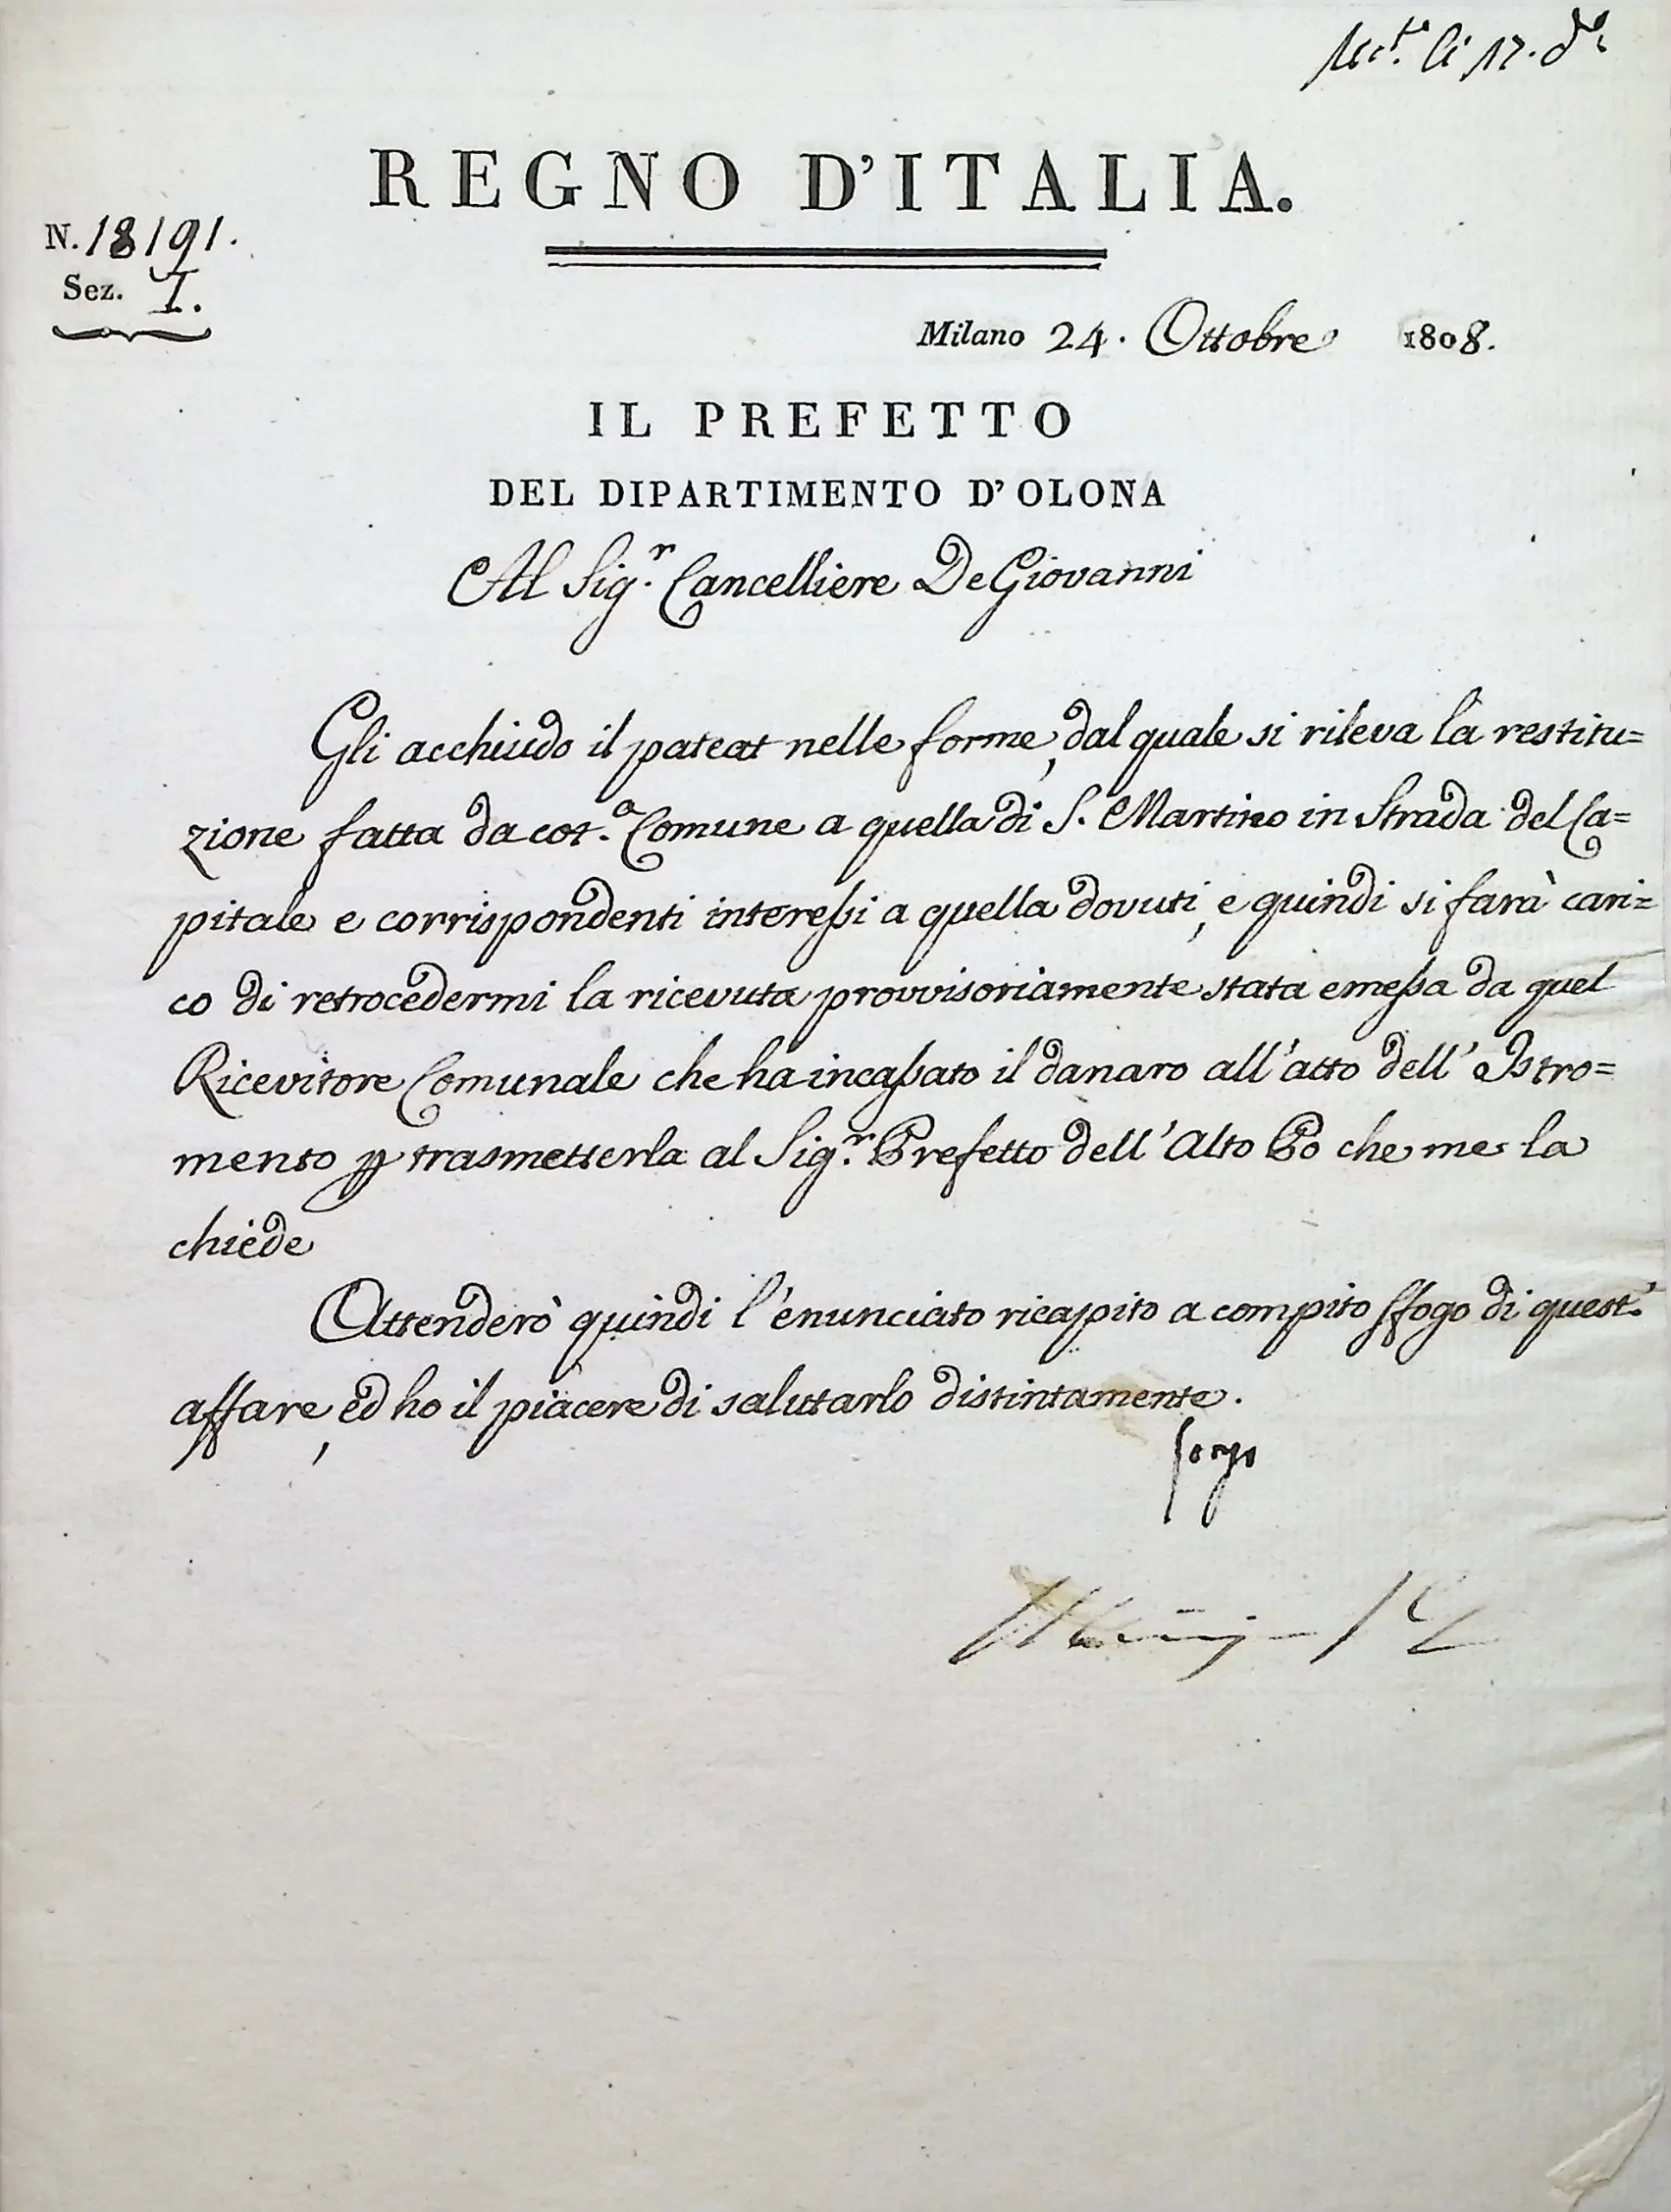 li
REGNO D'ITALIA.
N. 18191.
Sez. I.
Milano 24. Ottobre 1808.
IL PREFETTO
DEL DIPARTIMENTO D'OLONA
Al Sig.r Cancelliere De Giovanni
Gli acchiudo il pateat nelle forme, dal quale si rileva la restitu=
zione fatta da cot.a Comune a quella di S. Martino in Strada del Ca=
pitale e corrispondenti interessi a quella dovuti, e quindi si farà cari=
co di retrocedermi la ricevuta provvisoriamente stata emessa da quel
Ricevitore Comunale che ha incassato il danaro all'atto dell'Istro=
mento p trasmetterla al Sig.r Prefetto dell'Alto Po che me la
chiede
Attenderò quindi l'enunciato ricapito a compito sfogo di quest'
affare, ed ho il piacere di salutarlo distintamente.